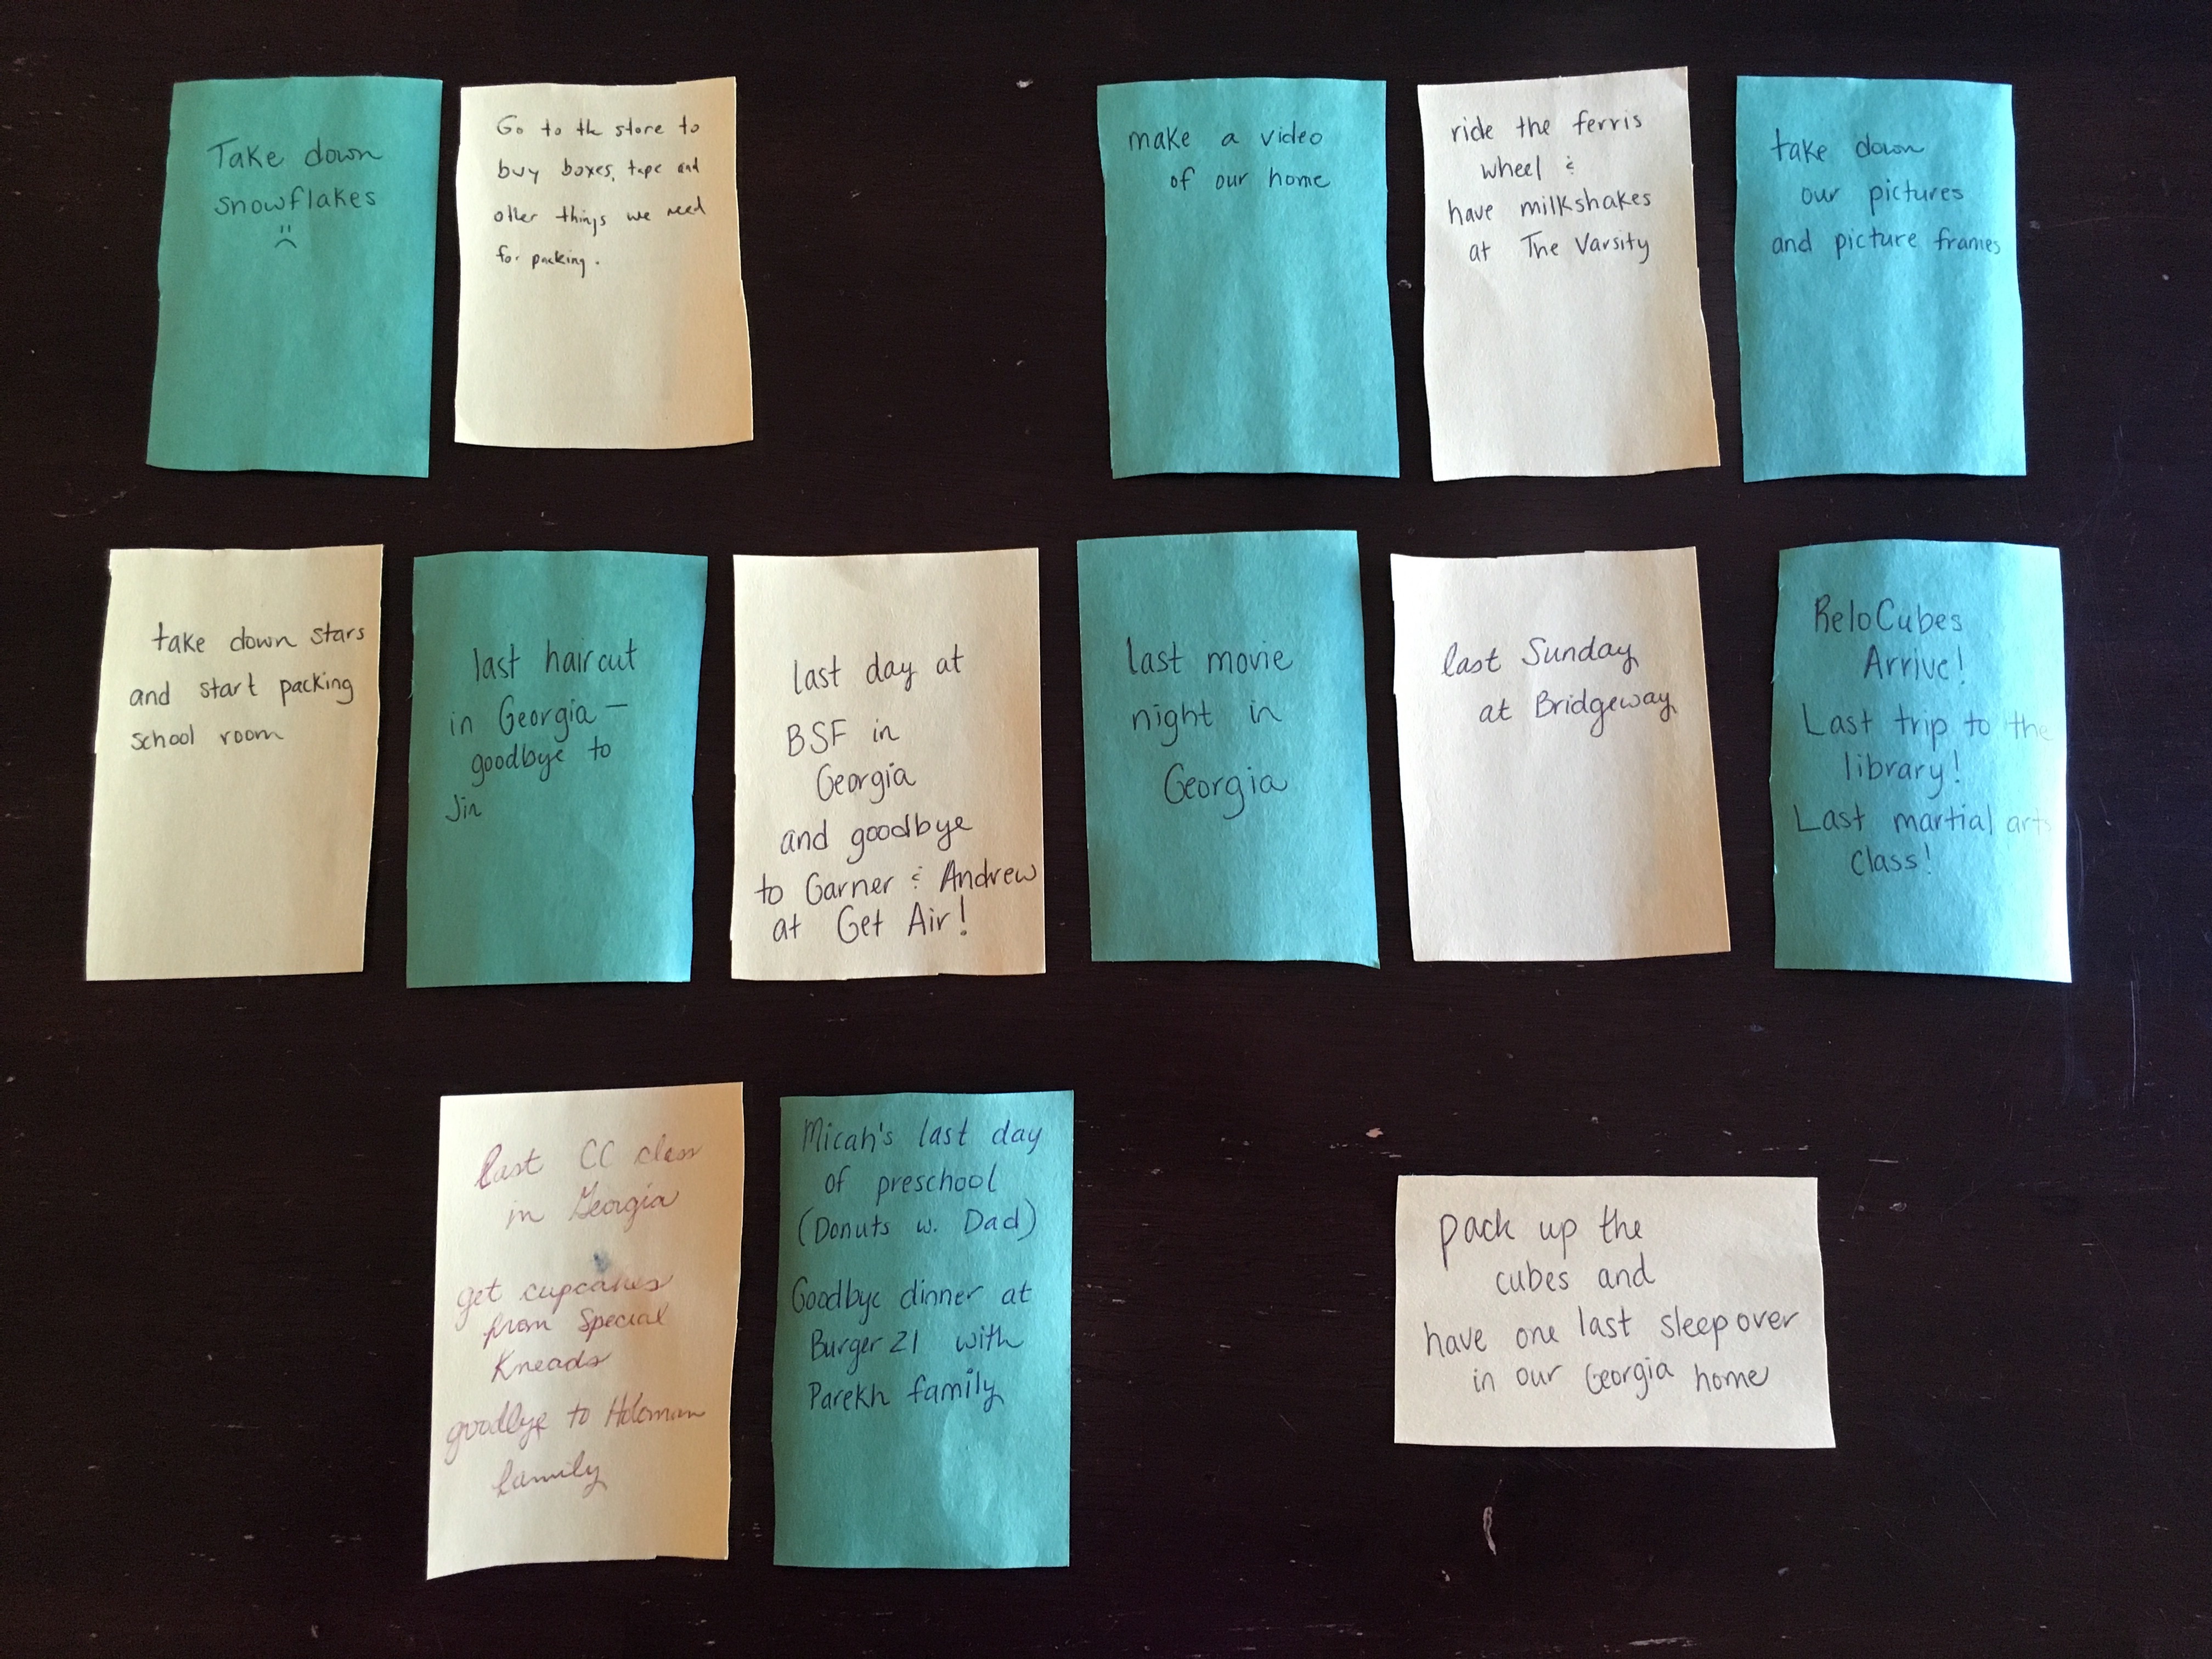 Take down
snowflakes
Go to the store to
buy boxes, tape and
other things we need
for packing.
make a video
of our home
ride the ferris
wheel &
have milkshakes
at The Varsity
take down
our pictures
and picture frames
take down stars
and start packing
school room
last haircut
in Georgia –
goodbye to
Jin
last day at
BSF in
Georgia
and goodbye
to Garner & Andrew
at Get Air!
last movie
night in
Georgia
last Sunday
at Bridgeway
ReloCubes
Arrive!
Last trip to the
library!
Last martial arts
class!
last CC class
in Georgia
get cupcakes
from Special
Kneads
goodbye to Holoman
family
Micah's last day
of preschool
(Donuts w. Dad)
Goodbye dinner at
Burger 21 with
Parekh family
pack up the
cubes and
have one last sleepover
in our Georgia home